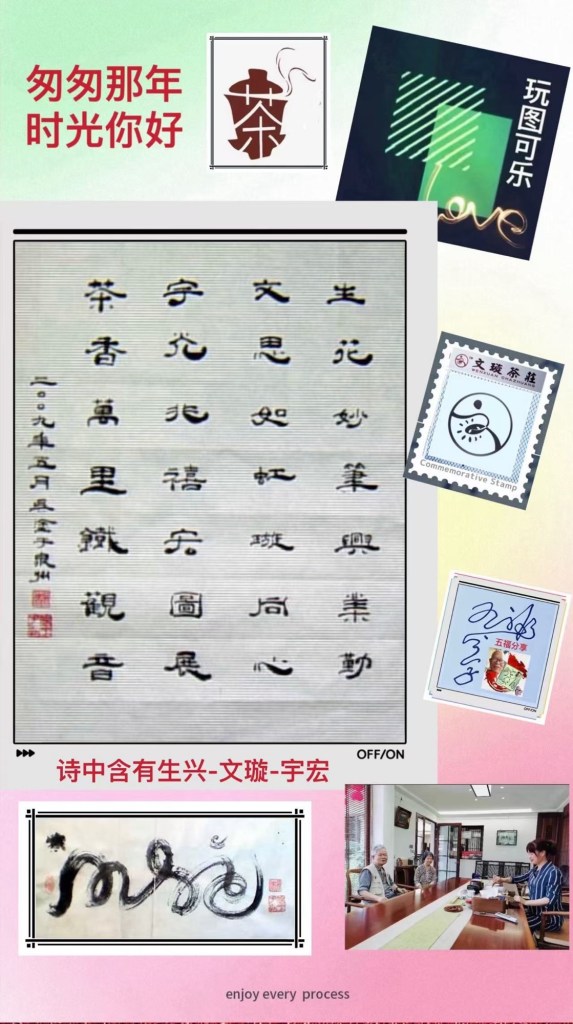 匆匆那年
时光你好
茶
玩图可乐
Love
生花妙筆興業勤
文思如虹璇同心
宇光兆禧宏圖展
茶香萬里鐵觀音
二〇〇九年五月
文璇茶莊
WENXUAN CHAZHUANG
Commemorative Stamp
五福分享
OFF/ON
诗中含有生兴-文璇-宇宏
enjoy every process